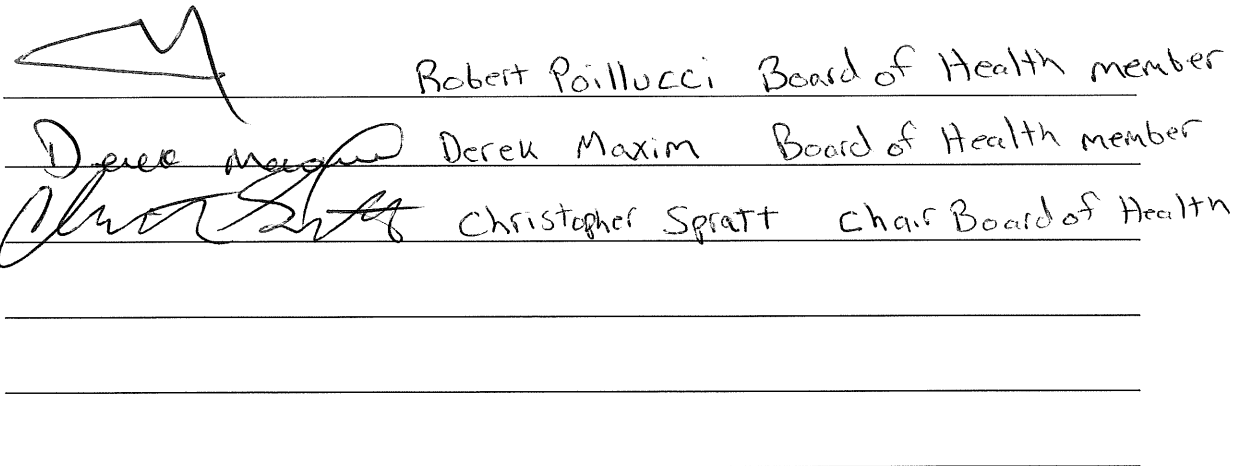 Robert Poillucci Board of Health member
Derek Maxim Derek Maxim Board of Health member
Christopher Spratt Chair Board of Health